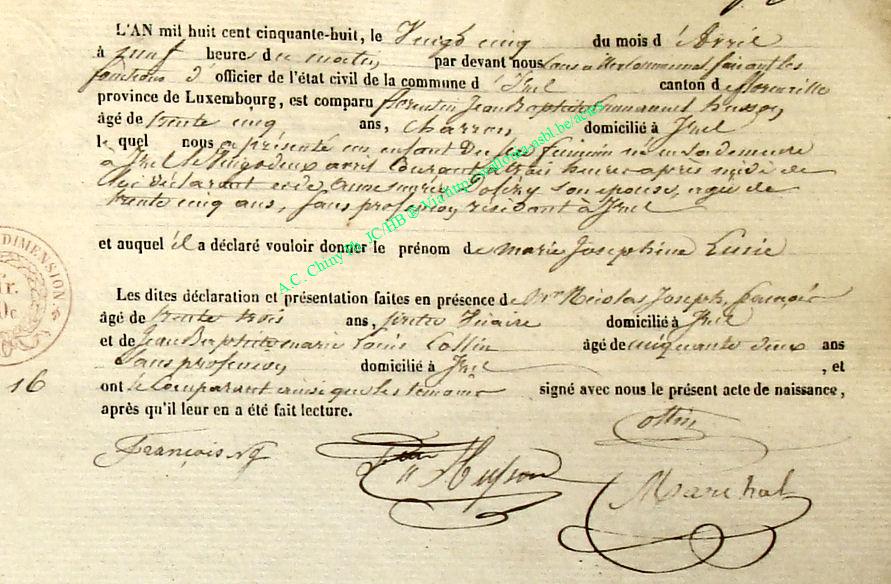 L'AN mil huit cent cinquante-huit, le Vingt cinq du mois d'Avril
à neuf heures du matin par devant nous faisant les
fonctions d'officier de l'état civil de la commune d'Izel canton de florenville
province de Luxembourg, est comparu florentin Jean Baptiste Emmanuel husson
âgé de trente cinq ans, charron domicilié à Izel
lequel nous a présenté un enfant du sexe féminin né en sa demeure
à Izel le Vingt deux avril courant à trois heures après midi de
lui déclarant et de Anne marie son épouse, agée de
trente cinq ans, sans profession, résidant à Izel
et auquel il a déclaré vouloir donner le prénom de marie Josephine Lucie
Les dites déclaration et présentation faites en présence de Mr Nicolas Joseph, françois
âgé de trente trois ans, prêtre Vicaire domicilié à Izel
et de Jean Baptiste marie Louis Collin âgé de cinquante deux ans
Sans profession domicilié à Izel, et
16 ont le Comparant ainsi que les temoins signé avec nous le présent acte de naissance,
après qu'il leur en a été fait lecture.
Collin
François Husson
Marechal
DIMENSION
A.C. Chiny Ph. JC/HB ® Via http://wallonia-asbl.be/ac